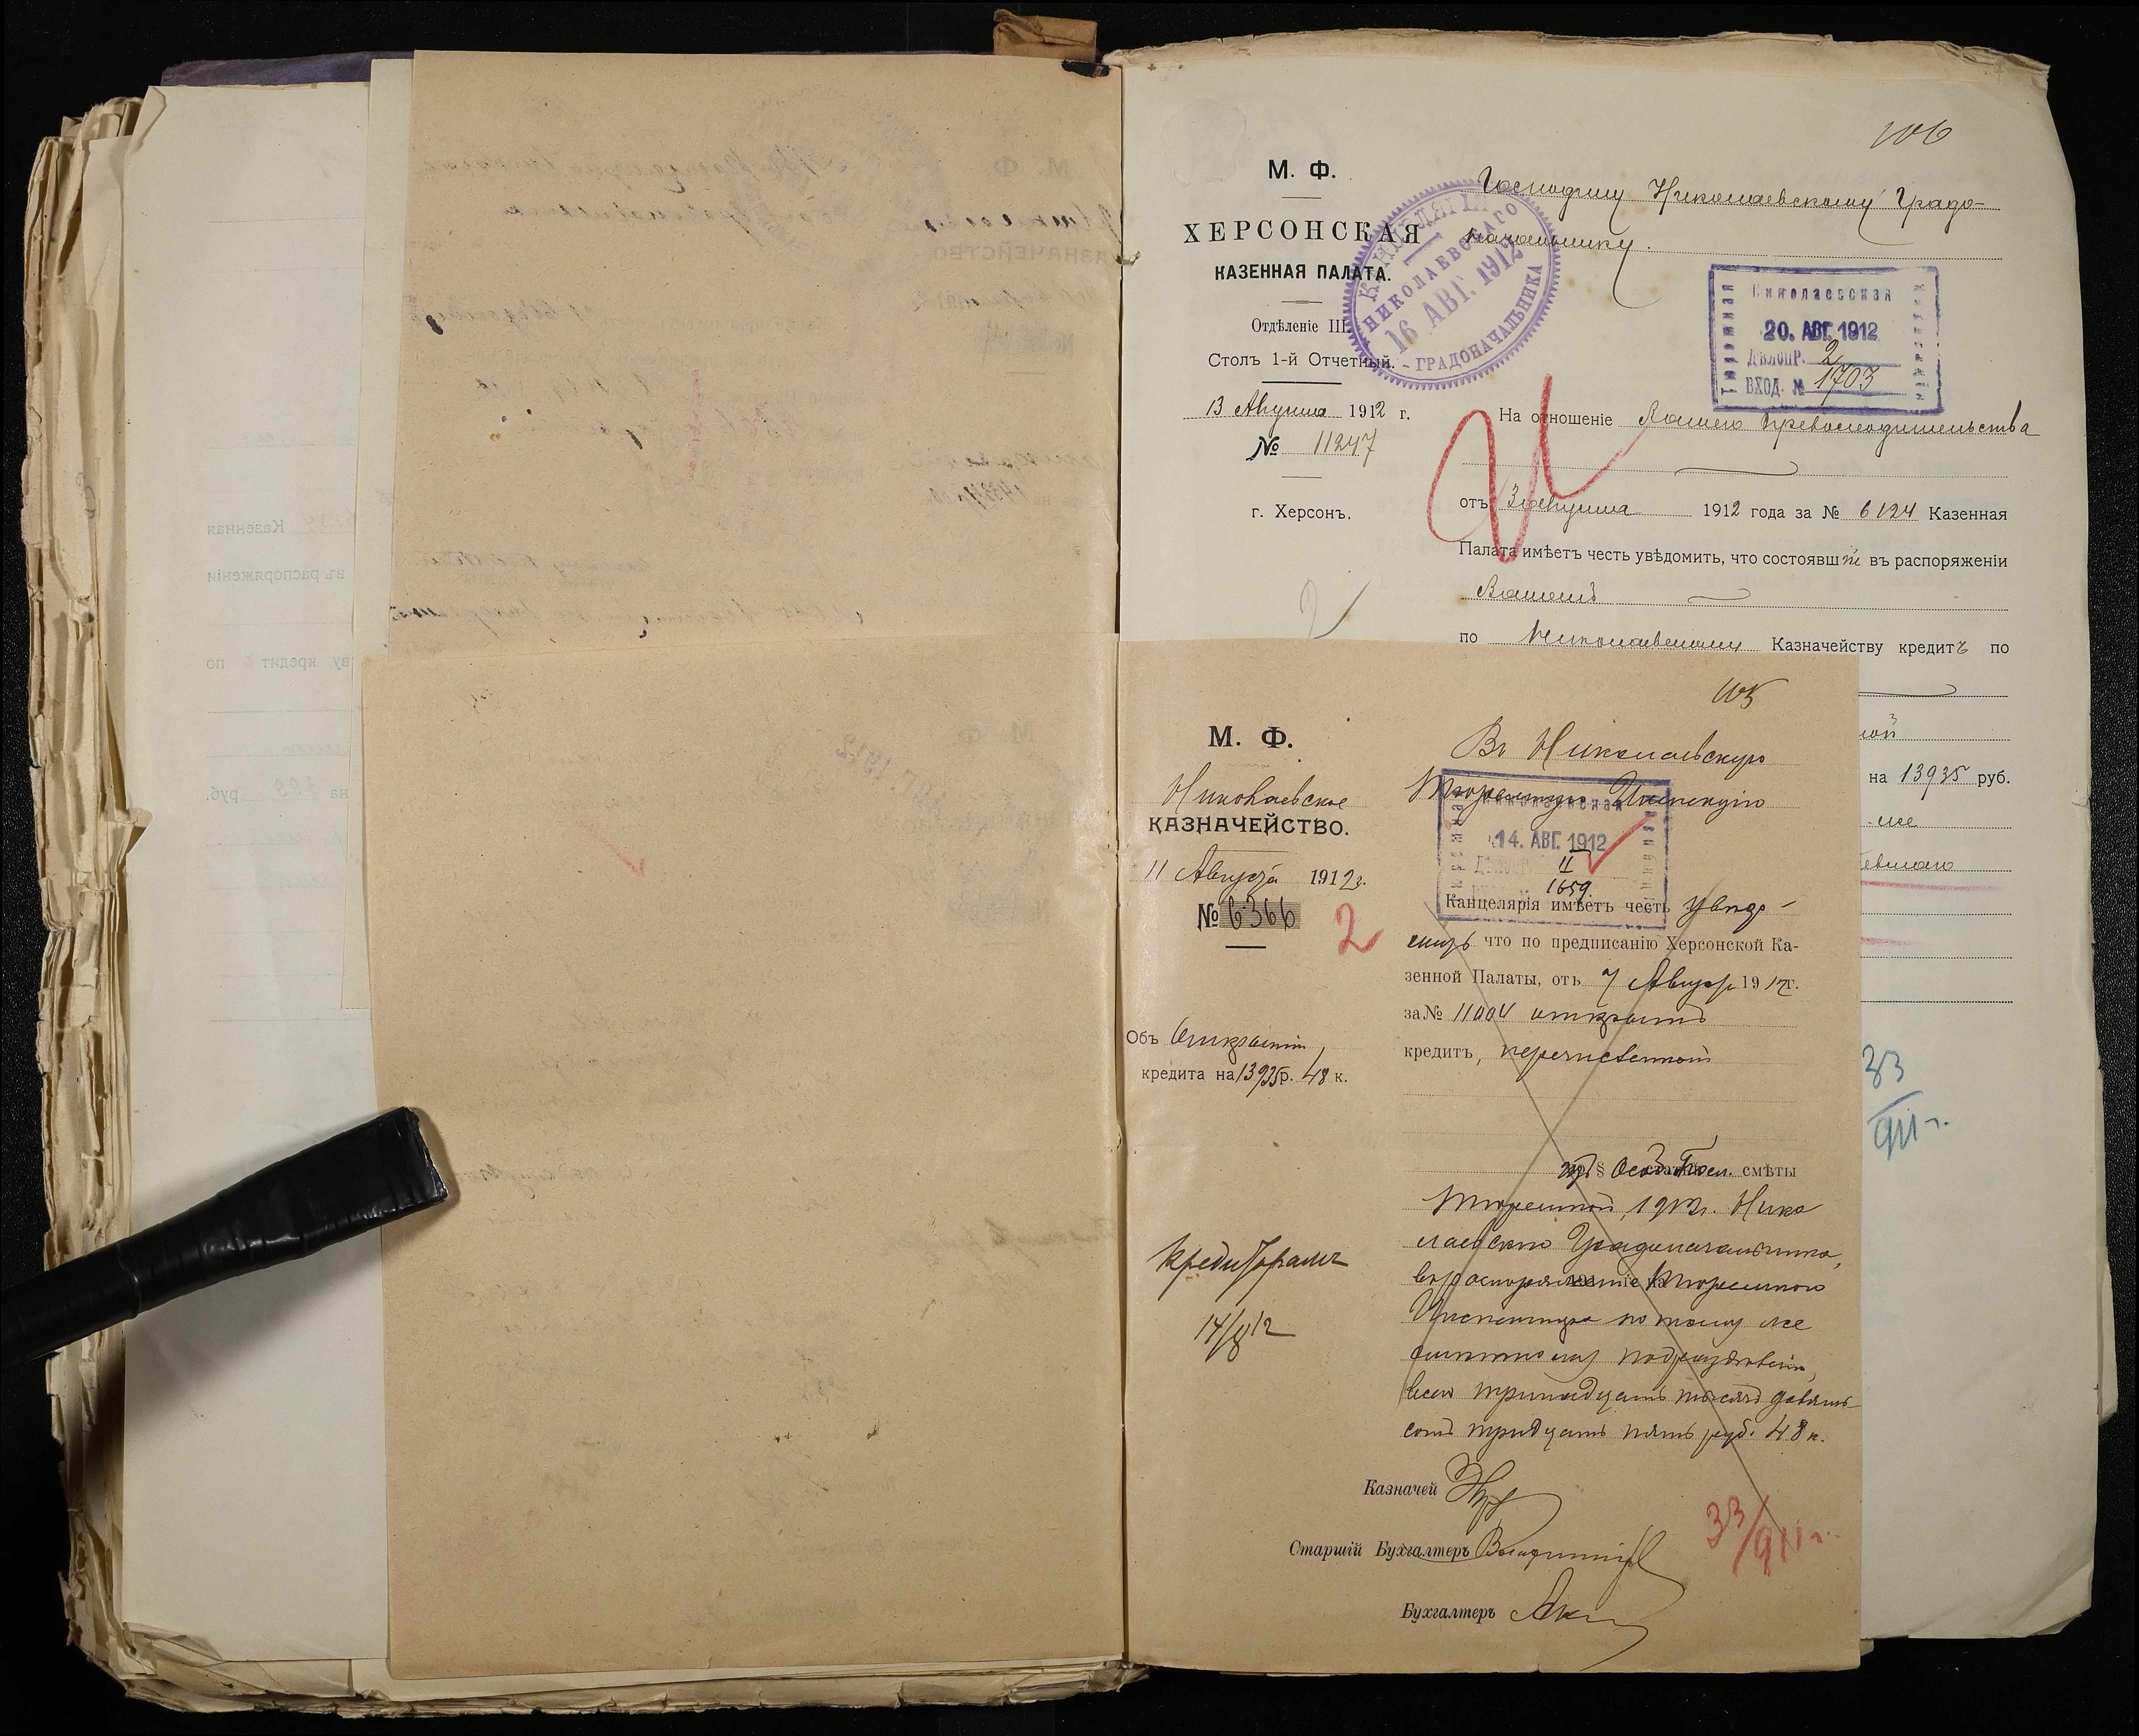 106
М. Ф.
ХЕРСОНСКАЯ
КАЗЕННАЯ ПАЛАТА.
Отдѣленіе III.
Столъ 1-й Отчетный.
13 Августа 1912 г.
№ 11247
г. Херсонъ.
Господину Николаевскому Градо-
начальнику.
КАНЦЕЛЯРІЯ
НИКОЛАЕВСКАГО
16 АВГ. 1912
ГРАДОНАЧАЛЬНИКА
Николаевская
Тюремная
20. АВГ. 1912
ДѢЛОПР. 2
ВХОД. № 1703
На отношеніе Вашего Превосходительства
отъ 3 Августа 1912 года за № 6124 Казенная
Палата имѣетъ честь увѣдомить, что состоявшій въ распоряженіи
Вашемъ
по Николаевскому Казначейству кредитъ по
на 13935 руб.
33
911 г.
105
М. Ф.
Николаевское
КАЗНАЧЕЙСТВО.
11 Августа 1912 г.
№ 6366
2
Объ открытіи
кредита на 13935 р. 48 к.
Кредиторамъ
14/8 12
Въ Николаевскую
Тюремную Инспекцію
14. АВГ. 1912
II
1659.
Канцелярія имѣетъ честь увѣдо-
мить что по предписанію Херсонской Ка-
зенной Палаты, отъ 7 Августа 1912 г.
за № 11004 открытъ
кредитъ, перечисленный
смѣты
Тюремной, 1912 г. Нико
лаевскаго Градоначальника,
въ распоряженіе Тюремнаго
Инспектора по тому же
подраздѣленію,
всего тринадцать тысячъ девять-
сотъ тридцать пять руб. 48 к.
Казначей
Старшій Бухгалтеръ
Бухгалтеръ
33/911 г.
Казенная
въ распоряженіи
по
ву кредит
на
руб.